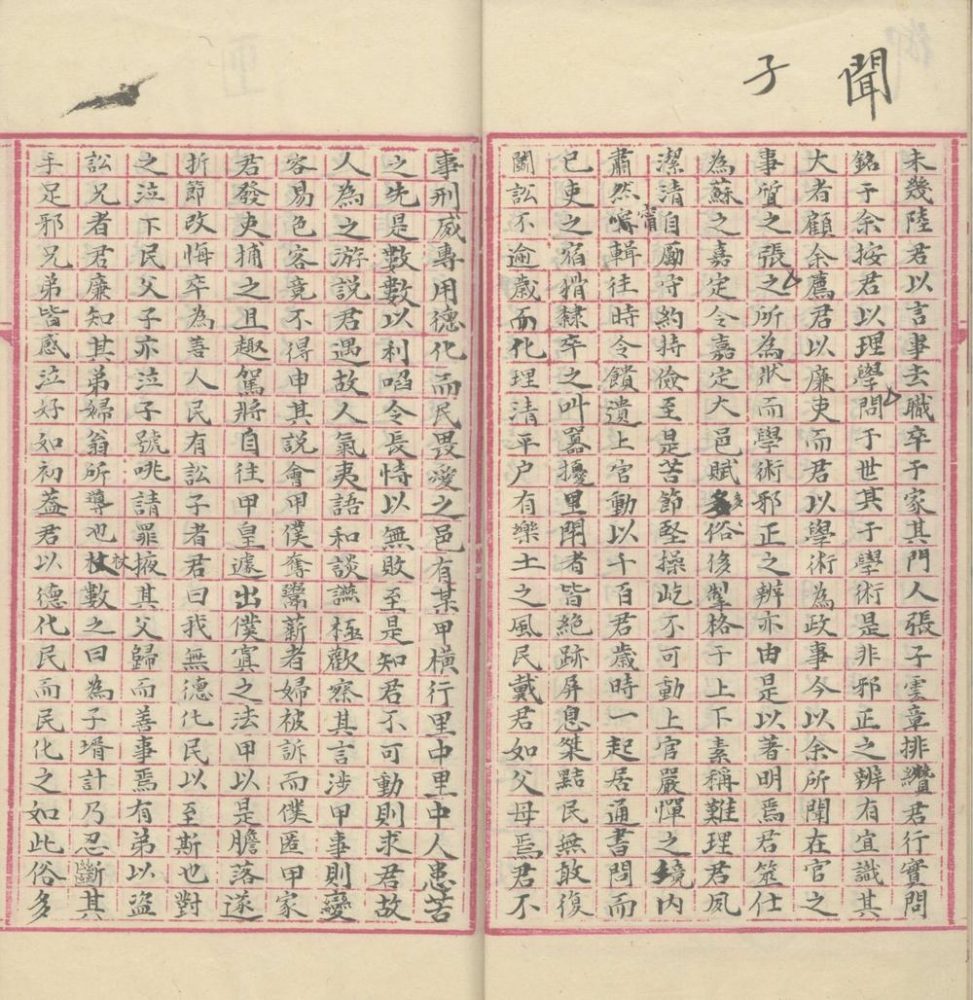 聞子
未幾陸君以言事去職卒于家其門人張子雲章排纘君行實問
銘于余按君以理學問于世其于學術是非邪正之辨有宜識其
大者顧余薦君以廉吏而君以學術為政事今以余所聞在官之
事質之張之所為狀而學術邪正之辨亦由是以著明焉君筮仕
為蘇之嘉定令嘉定大邑賦多俗後掣格于上下素稱難理君夙
多
潔清自勵守約持儉至是苦節堅操屹不可動上官嚴憚之境內
甯
肅然輯往時令饋遺上官動以千百君歲時一起居通書問而
已吏之宿猾隸卒之叫囂擾里閈者皆絕跡屏息桀黠民無敢復
鬭訟不逾歲而化理清平户有樂土之風民戴君如父母焉君不
事刑威專用德化而民畏愛之邑有某甲橫行里中里中人患苦
之先是數數以利啗令長恃以無敗至是知君不可動則求君故
人為之游說君遇故人氣夷語和談讌極歡察其言涉甲事則變
容易色客竟不得申其說會甲僕奪鬻薪者婦被訴而僕匿甲家
君發吏捕之且趣駕將自往甲皇遽出僕寘之法甲以是膽落遂
折節改悔卒為善人民有訟子者君曰我無德化民以至斯也對
之泣下民父子亦泣子號咷請罪掖其父歸而善事焉有弟以盜
杖
訟兄者君廉知其弟婦翁所導也杖數之曰為子壻計乃忍斷其
手足邪兄弟皆感泣好如初葢君以德化民而民化之如此俗多